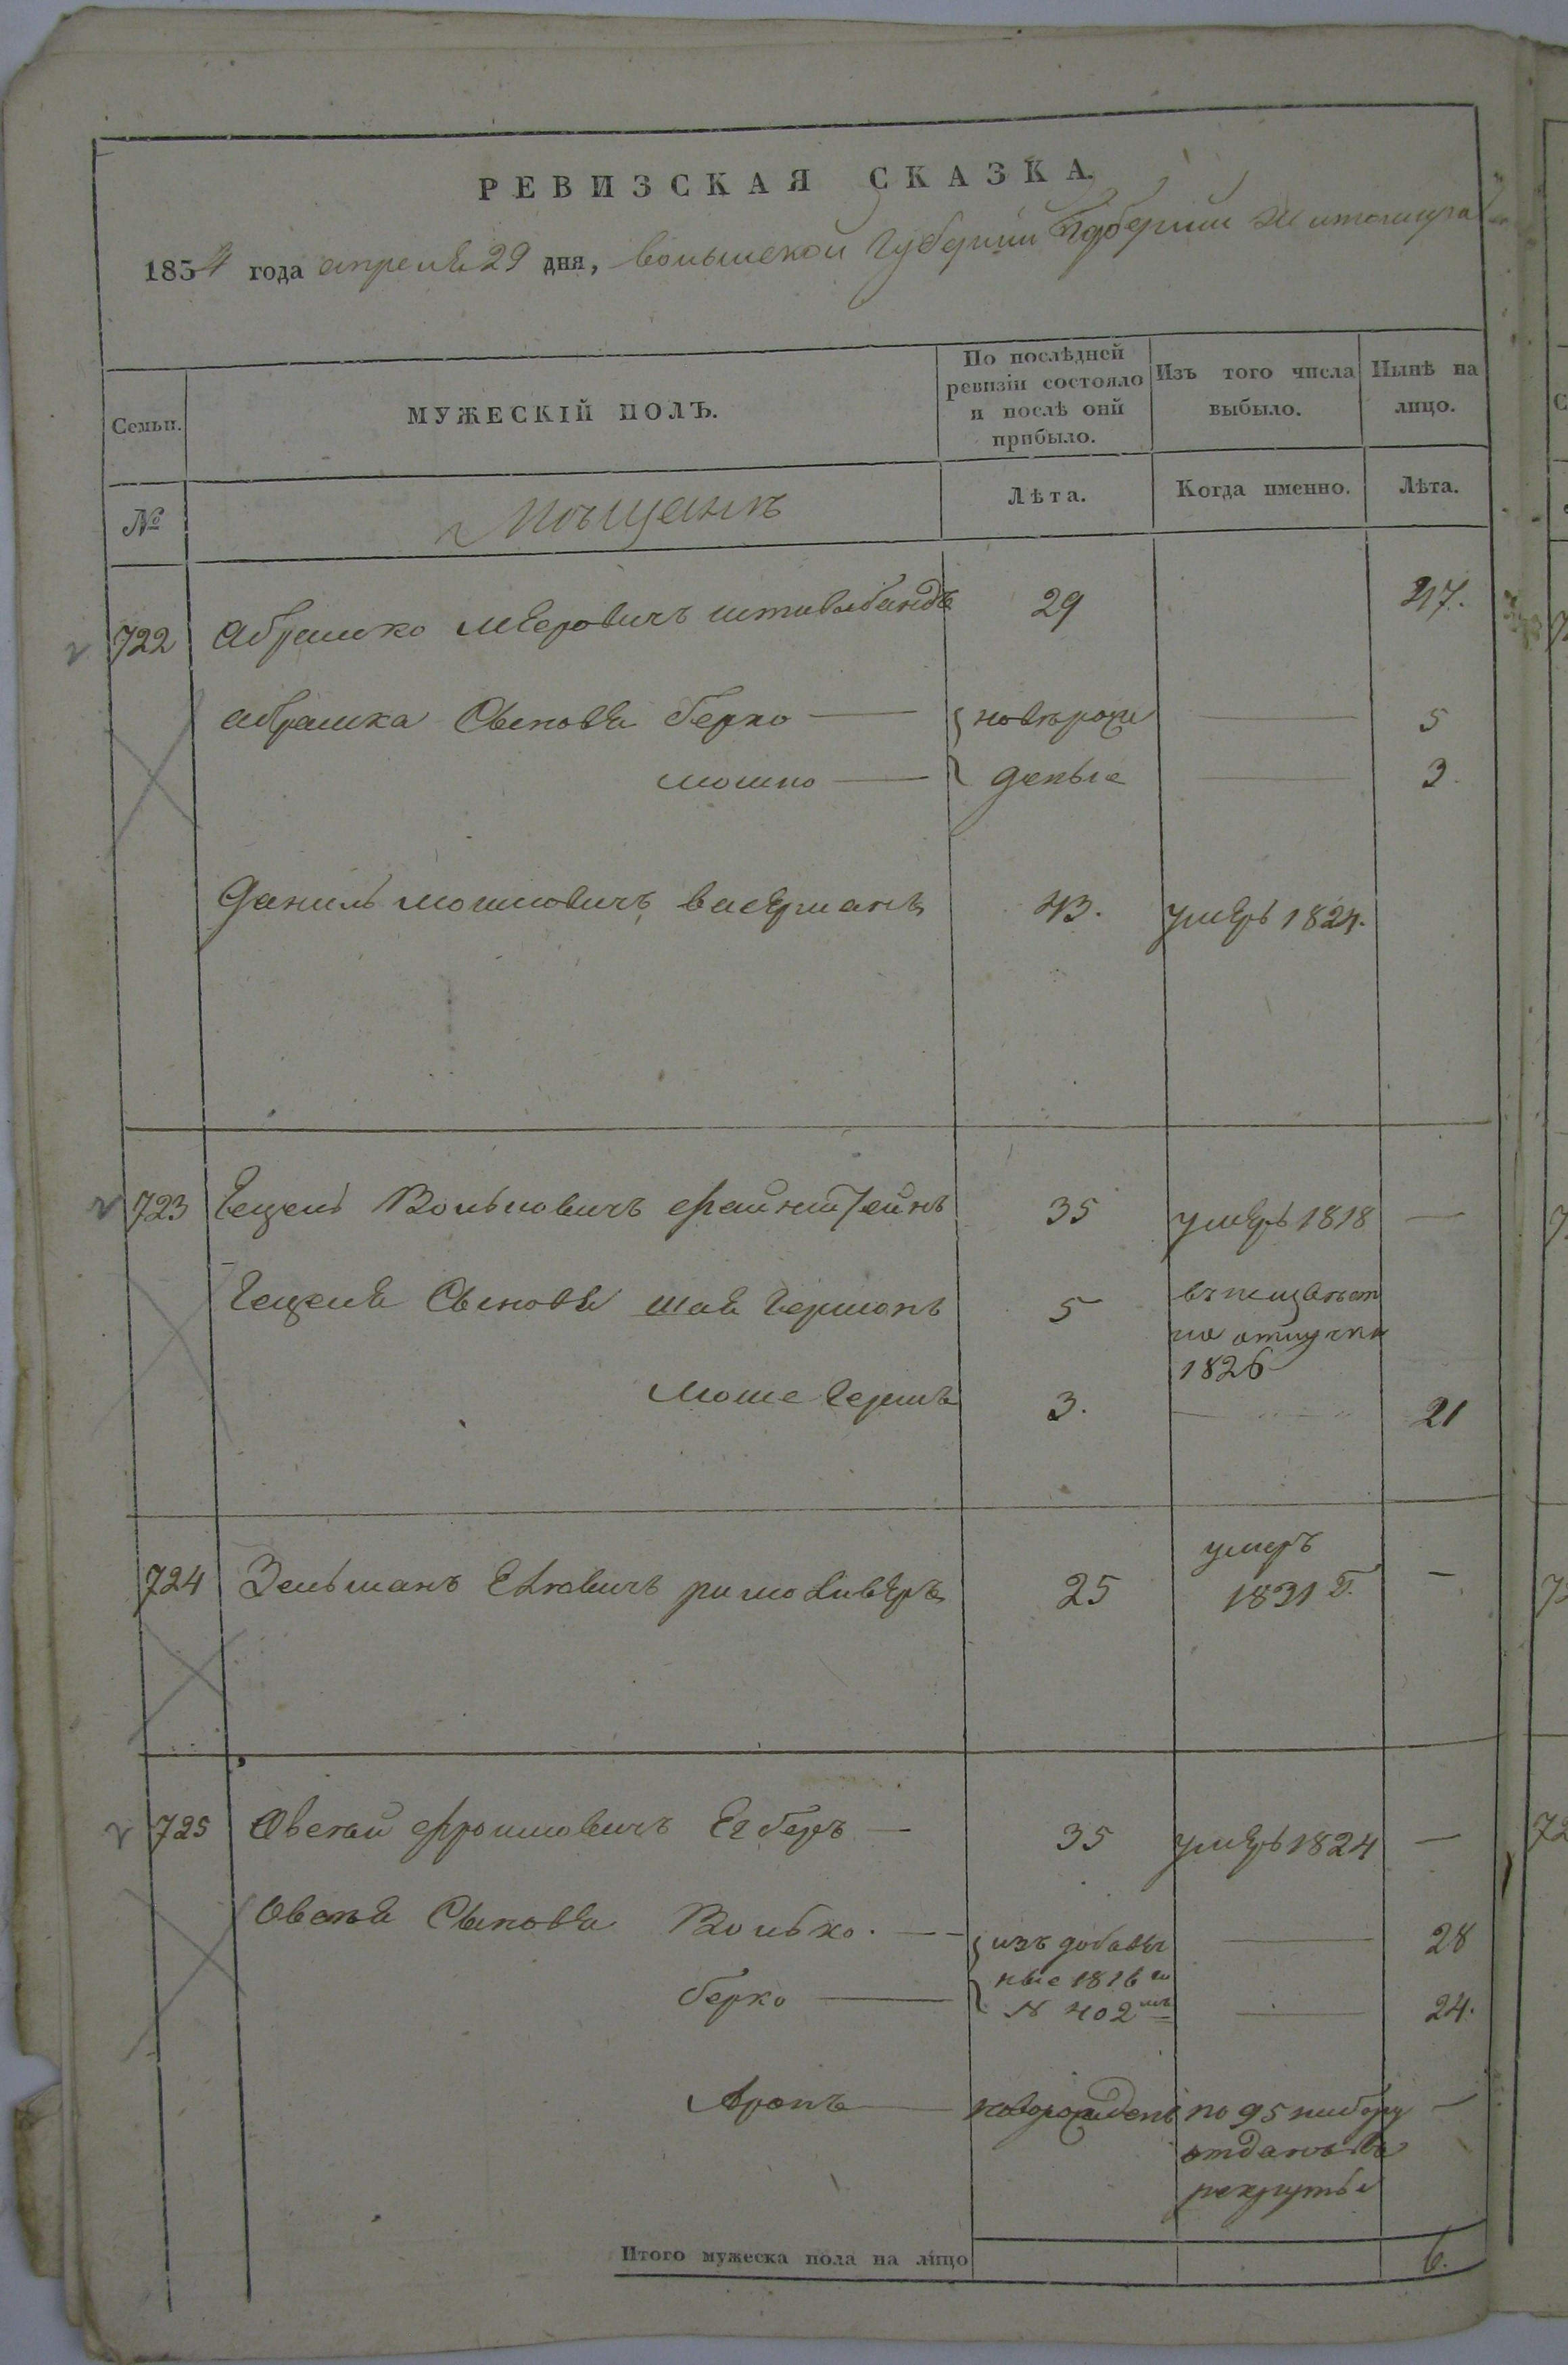 РЕВИЗСКАЯ СКАЗКА.
1834 года апреля 29 дня, волынской Губернии Губернии Житомира
Семьи.
МУЖЕСКІЙ ПОЛЪ.
По послѣдней ревизіи состояло и послѣ оной прибыло.
Изъ того числа выбыло.
Нынѣ на лицо.
№
Мѣщанъ
Лѣта.
Когда именно.
Лѣта.
722 Абрамко мееровичъ штивельбандъ 29 47.
абрамка Сыновья берко — новорож — 5
мошко — деные — 3.
Даниль мошковичъ васерманъ 43. умеръ 1824.
723 Гецель Вольковичъ файнштейнъ 35 умеръ 1818 —
Гецеля Сыновья шая Германъ 5 въ
1826
Моше Гершъ 3. 21
724 Зельманъ 25 умеръ 1831 г. —
725 Овсей фроимовичъ 35 умеръ 1824 —
Овсея Сыновья Волько. — изъ добавоч — 28
берко — ные 1816 го № 402 мъ — 24.
Аронъ — новорожденъ по 95 набору —
отданъ въ
рекруты
Итого мужеска пола на лицо 6.